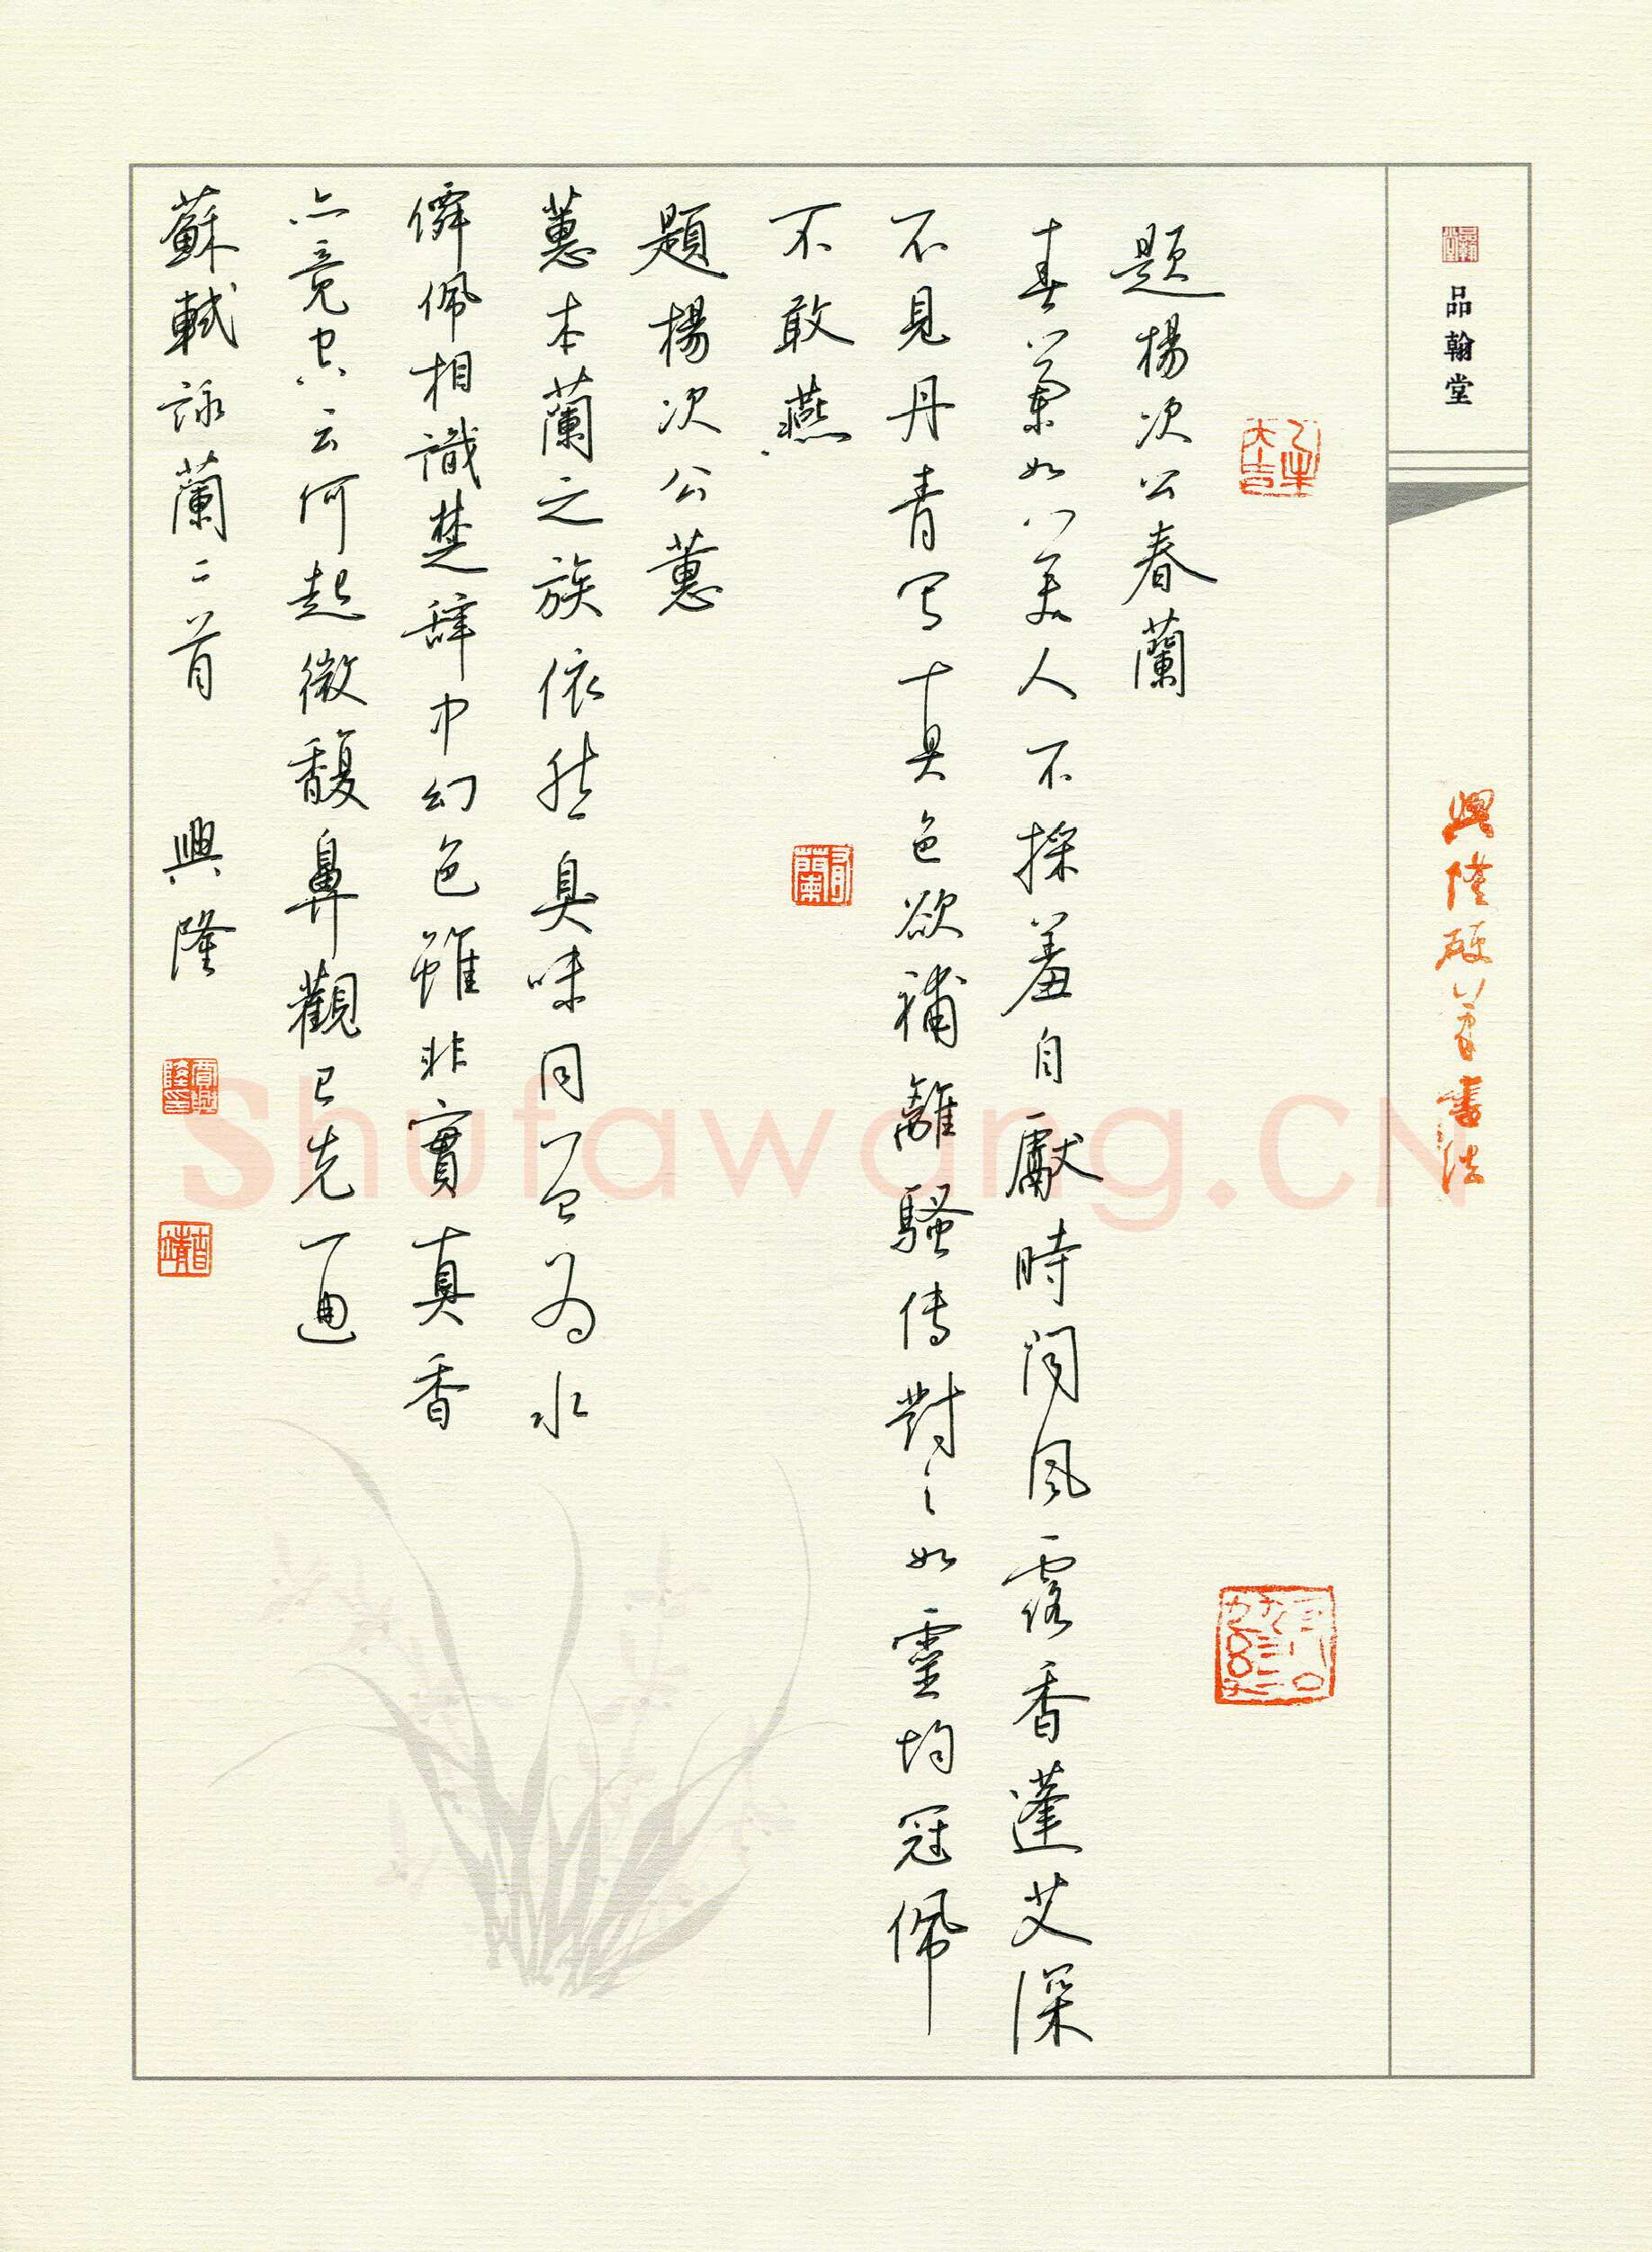 品翰堂
興隆硬筆書法
乙未大吉
題楊次公春蘭
春蘭如美人不採羞自獻時聞風露香蓬艾深
不見丹青寫真色欲補離騷傳對之如靈均冠佩
不敢燕
題楊次公蕙
蕙本蘭之族依然臭味同曾為水
僊佩相識楚辭中幻色雖非實真香
亦竟空云何起微馥鼻觀已先通
蘇軾詠蘭二首 興隆
Shufawang.CN